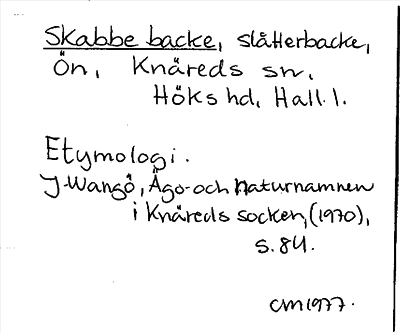 Skabbe backe, slåtterbacke,
Ön, Knäreds sn,
Höks hd, Hall. l.
Etymologi.
J. Wangö, Ägo- och naturnamnen
i Knäreds socken, (1970),
s. 84.
CM 1977.